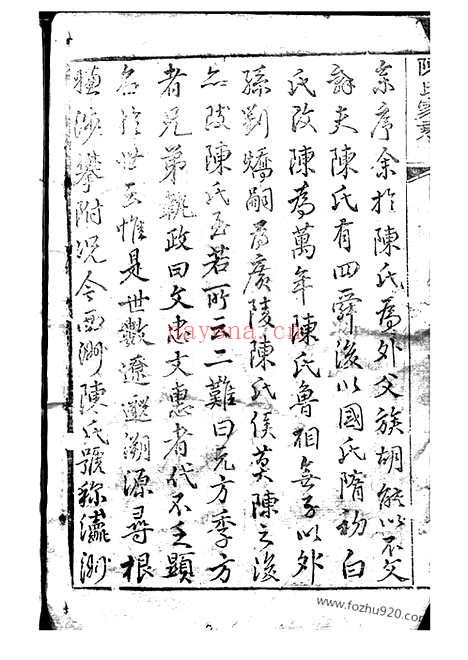 陳氏家乘
系序余於陳氏為外父族胡能以不文
辭夫陳氏有四舜後以國氏隋初白
氏改陳為萬年陳氏魯相無子以外
孫劉矯嗣為廣陵陳氏侯莫陳之後
亦改陳氏至若所云二難曰元方季方
者兄弟執政曰文忠文惠者代不乏顯
名於世互惟是世數遼邈溯源尋根
殊涉攀附況今西洲陳氏號稱瀛洲
nayona.cn
www.fozhu920.com